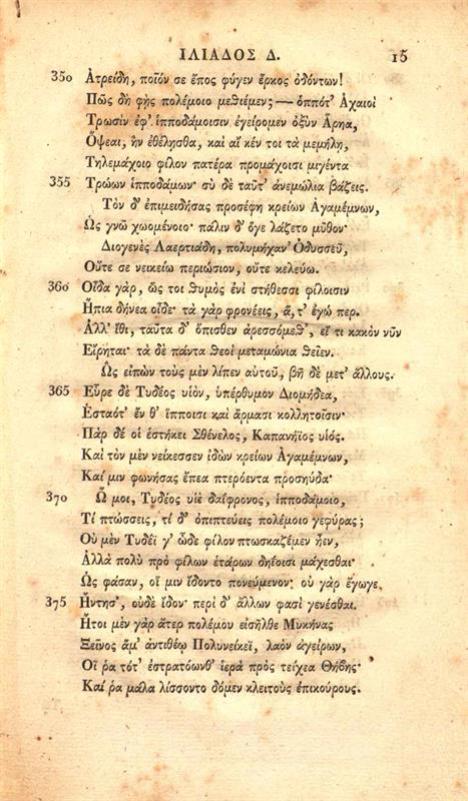 ΙΛΙΑΔΟΣ Δ. 15
350 Ἀτρείδη, ποῖόν σε ἔπος φύγεν ἕρκος ὀδόντων!
Πῶς δὴ φῂς πολέμοιο μεθιέμεν; — ὁππότ' Ἀχαιοὶ
Τρωσὶν ἐφ' ἱπποδάμοισιν ἐγείρομεν ὀξὺν Ἄρηα,
Ὄψεαι, ἢν ἐθέλησθα, καὶ αἴ κέν τοι τὰ μεμήλῃ,
Τηλεμάχοιο φίλον πατέρα προμάχοισι μιγέντα
355 Τρώων ἱπποδάμων· σὺ δὲ ταῦτ' ἀνεμώλια βάζεις.
Τὸν δ' ἐπιμειδήσας προσέφη κρείων Ἀγαμέμνων,
Ὡς γνῶ χωομένοιο· πάλιν δ' ὅγε λάζετο μῦθον·
Διογενὲς Λαερτιάδη, πολυμήχαν' Ὀδυσσεῦ,
Οὔτε σε νεικείω περιώσιον, οὔτε κελεύω.
360 Οἶδα γὰρ, ὥς τοι θυμὸς ἐνὶ στήθεσσι φίλοισιν
Ἤπια δήνεα οἶδε· τὰ γὰρ φρονέεις, ἅ, τ' ἐγώ περ.
Ἀλλ' ἴθι, ταῦτα δ' ὄπισθεν ἀρεσσόμεθ', εἴ τι κακὸν νῦν
Εἴρηται· τὰ δὲ πάντα θεοὶ μεταμώνια θεῖεν.
Ὣς εἰπὼν τοὺς μὲν λίπεν αὐτοῦ, βῆ δὲ μετ' ἄλλους.
365 Εὗρε δὲ Τυδέος υἱὸν, ὑπέρθυμον Διομήδεα,
Ἑσταότ' ἔν θ' ἵπποισι καὶ ἅρμασι κολλητοῖσιν·
Πὰρ δέ οἱ ἑστήκει Σθένελος, Καπανήϊος υἱός.
Καὶ τὸν μὲν νείκεσσεν ἰδὼν κρείων Ἀγαμέμνων,
Καί μιν φωνήσας ἔπεα πτερόεντα προσηύδα·
370 Ὤ μοι, Τυδέος υἱὲ δαΐφρονος, ἱπποδάμοιο,
Τί πτώσσεις, τί δ' ὀπιπτεύεις πολέμοιο γεφύρας;
Οὐ μὲν Τυδέϊ γ' ὧδε φίλον πτωσκαζέμεν ἦεν,
Ἀλλὰ πολὺ πρὸ φίλων ἑτάρων δηΐοισι μάχεσθαι·
Ὡς φάσαν, οἵ μιν ἴδοντο πονεύμενον· οὐ γὰρ ἔγωγε
375 Ἤντησ', οὐδὲ ἴδον· περὶ δ' ἄλλων φασὶ γενέσθαι.
Ἤτοι μὲν γὰρ ἄτερ πολέμου εἰσῆλθε Μυκήνας
Ξεῖνος ἅμ' ἀντιθέῳ Πολυνείκεϊ, λαὸν ἀγείρων,
Οἵ ῥα τότ' ἐστρατόωνθ' ἱερὰ πρὸς τείχεα Θήβης·
Καί ῥα μάλα λίσσοντο δόμεν κλειτοὺς ἐπικούρους.